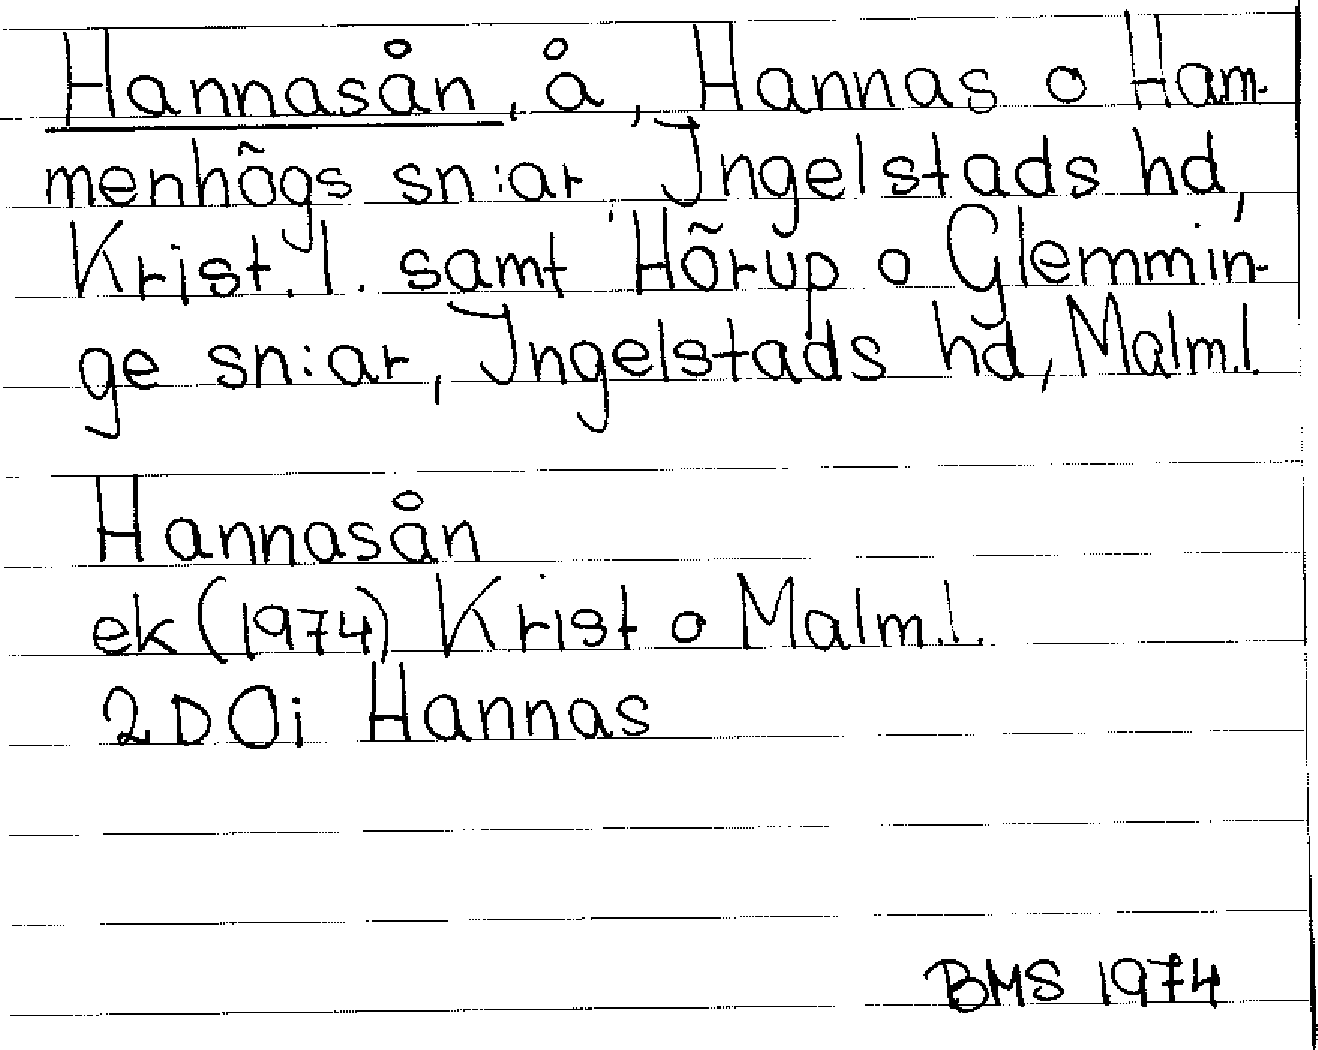 Hannasån, å, Hannas o Ham-
menhögs sn:ar, Ingelstads hd,
Krist. l. samt Hörup o Glemmin-
ge sn:ar, Ingelstads hd, Malm.l.
Hannasån
ek (1974) Krist o Malm.l.
2D Oi Hannas
BMS 1974